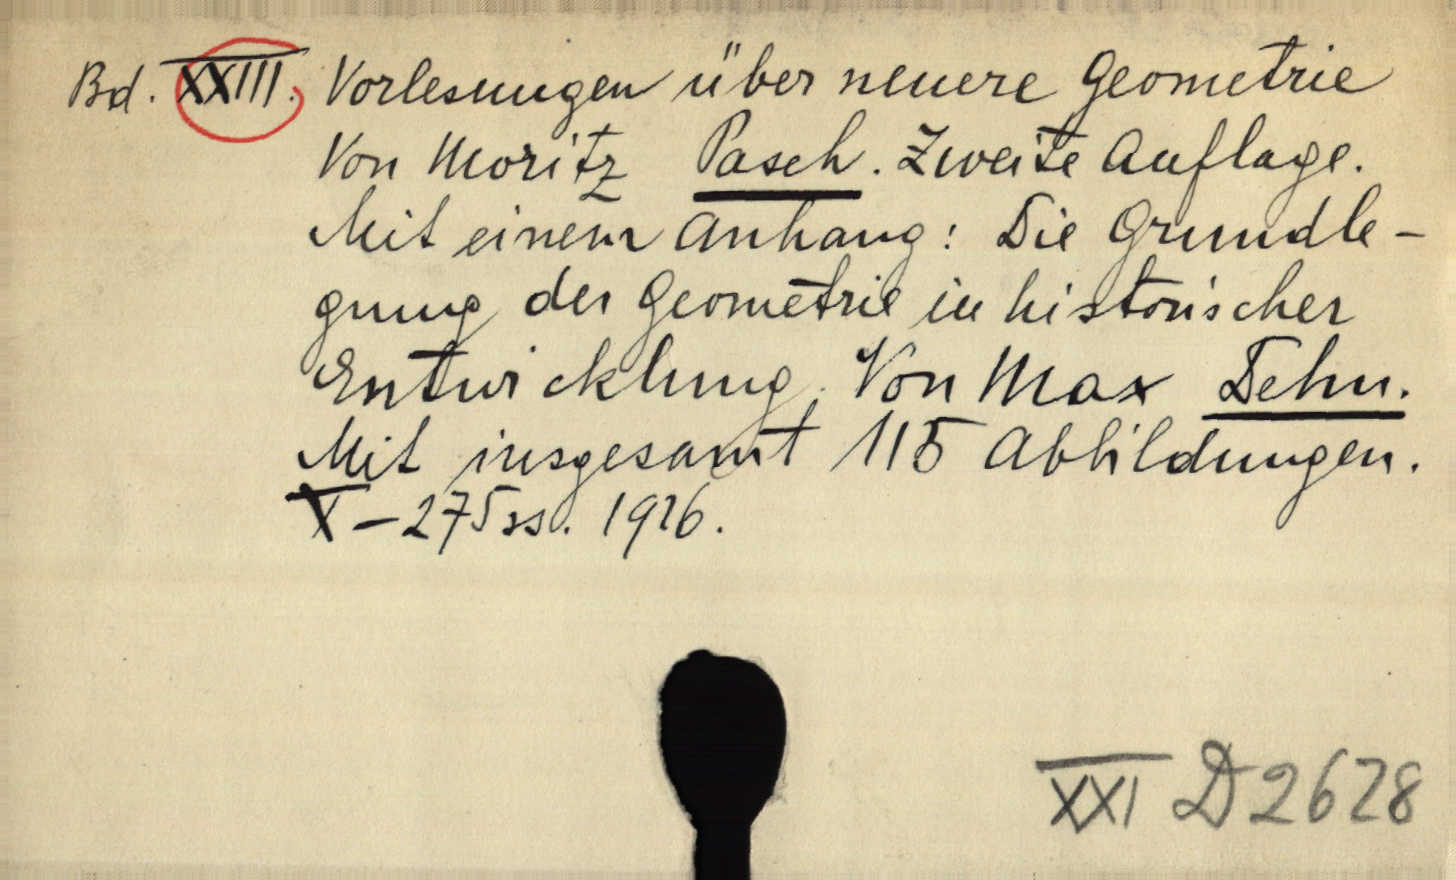 Bd. XXIII. Vorlesungen über neuere Geometrie
Von Moritz Pasch. Zweite Auflage.
Mit einem Anhang: Die Grundle-
gung der Geometrie in historischer
Entwicklung. Von Max Dehn.
Mit insgesamt 115 Abbildungen.
X-275 ss. 1926.
XXI D 2628